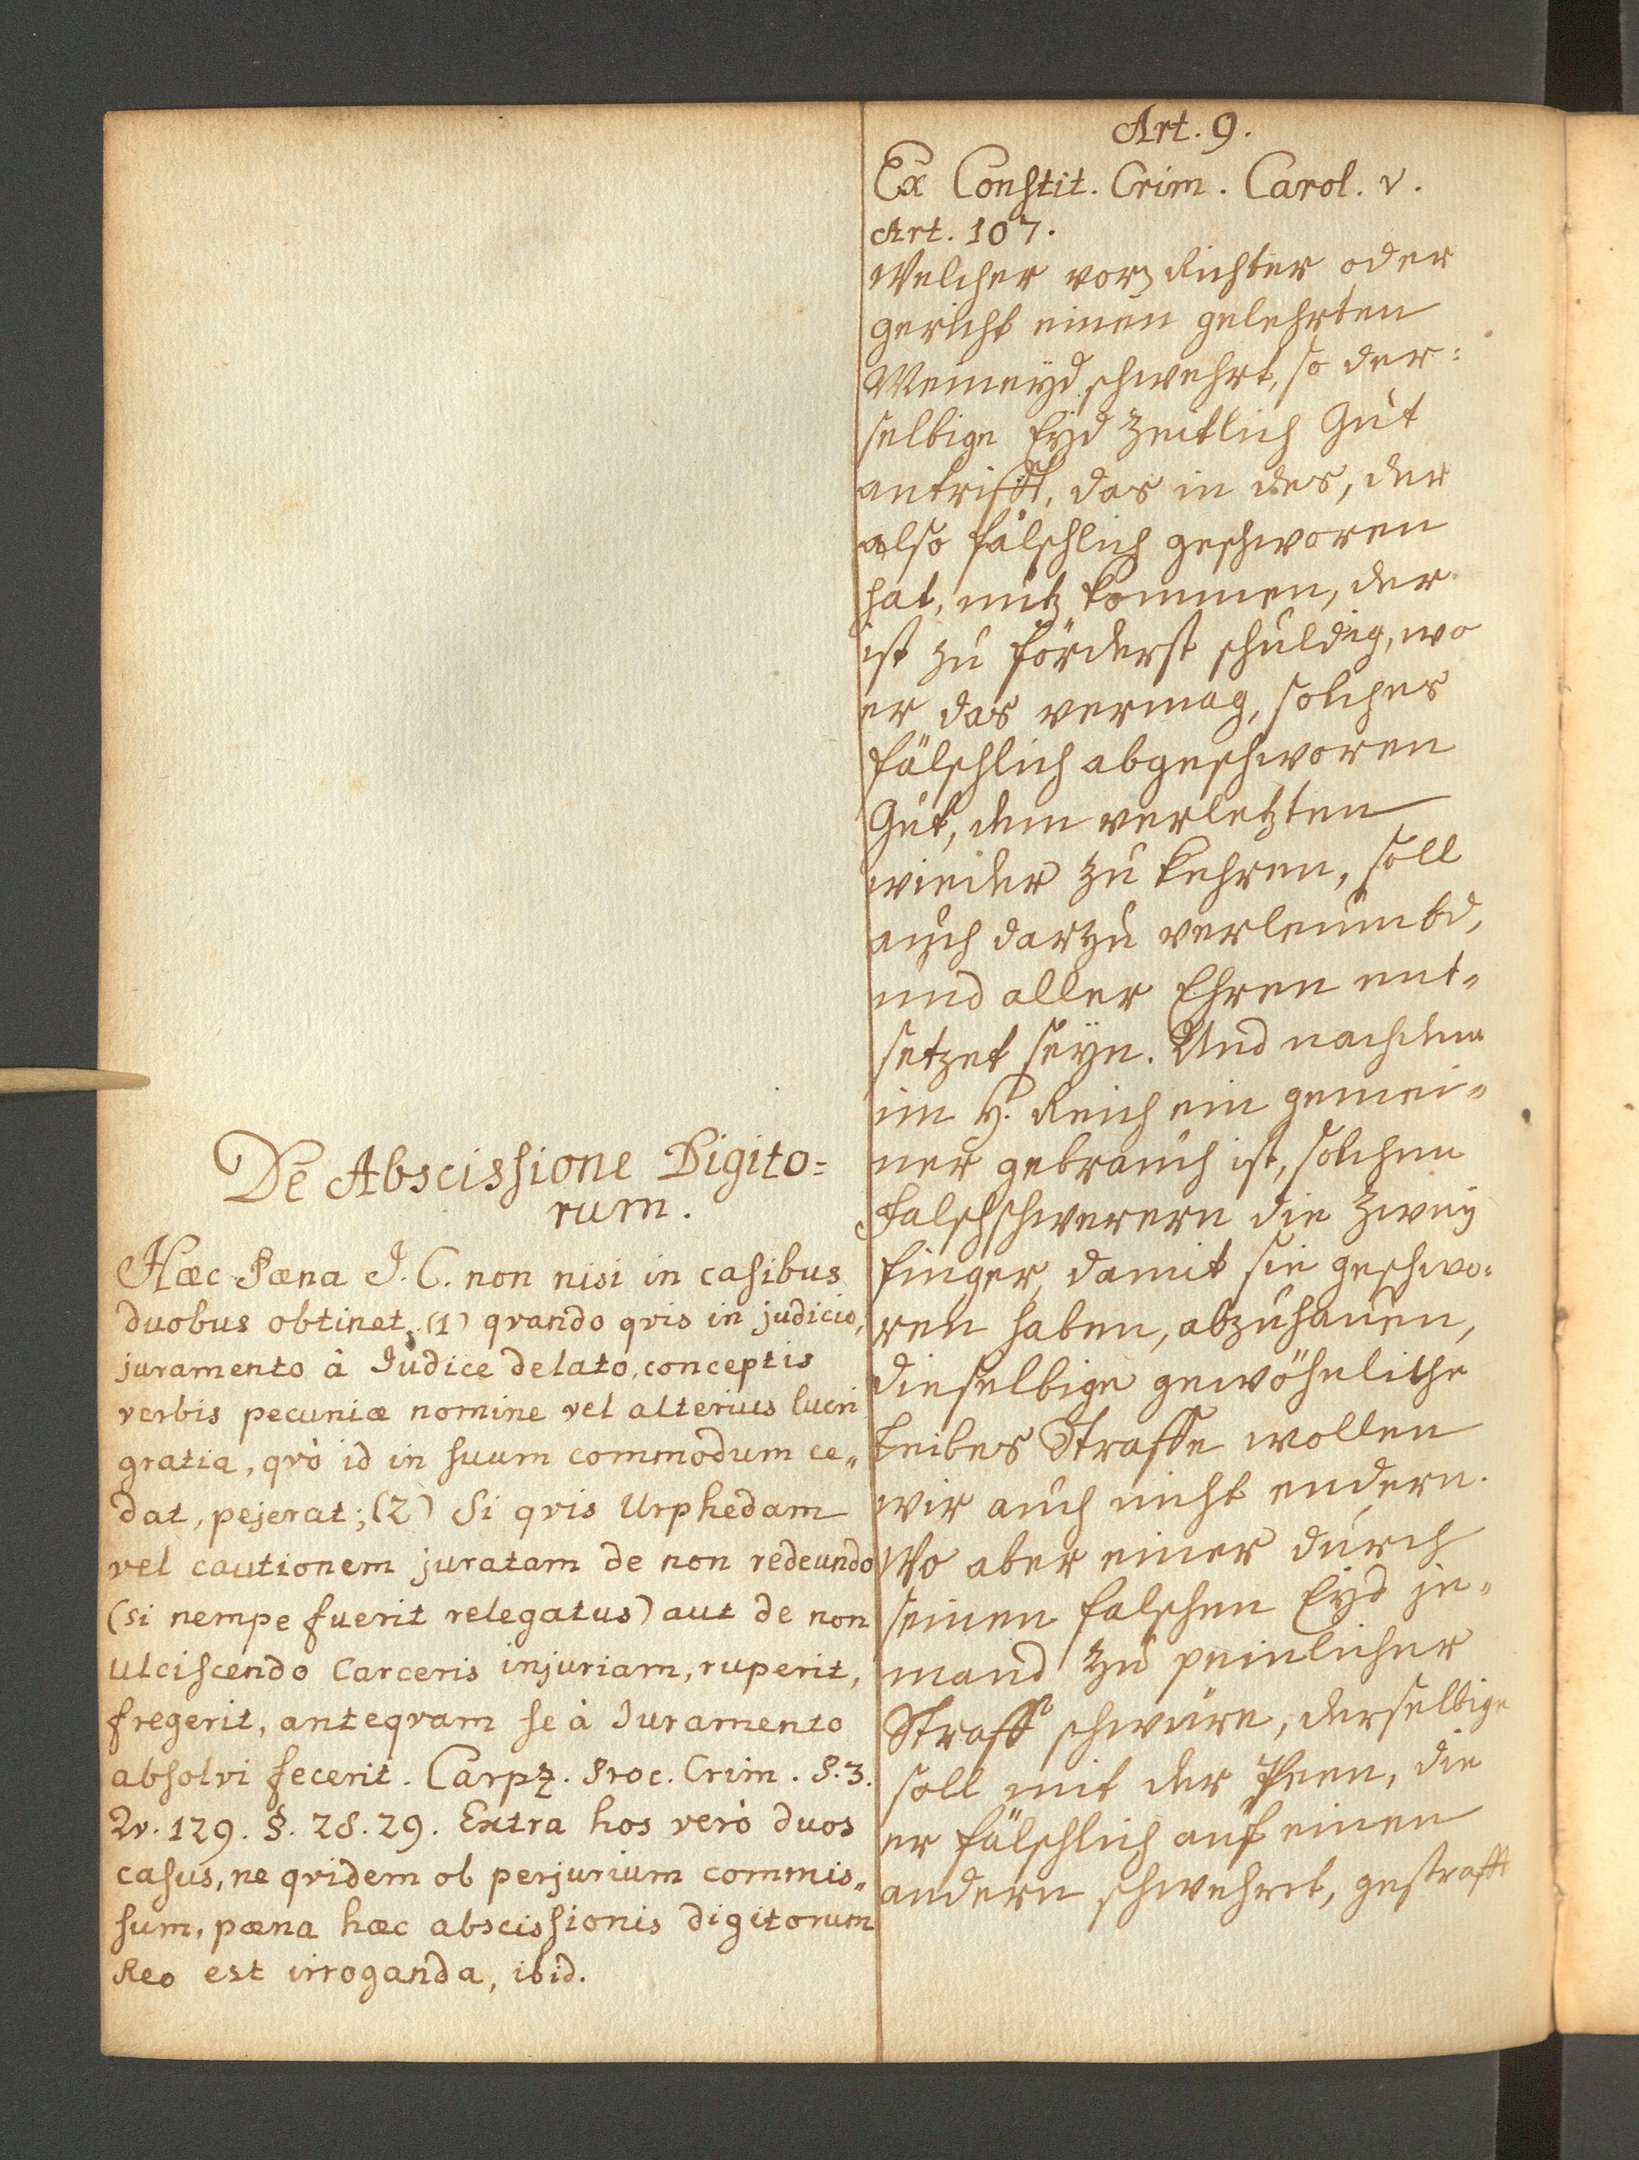 De Abscissione Digito=
rum.
Hæc Pæna J. C. non nisi in casibus
duobus obtinet, (1) qvando qvis in judicio,
juramento à Judice delato, conceptis
verbis pecuniæ nomine vel alterius lucri
gratia, qvò id in suum commodum ce„
dat, pejerat; (2) Si qvis Urphedam
vel cautionem juratam de non redeundo
(si nempe fuerit relegatus) aut de non
ulciscendo Carceris injuriam, ruperit,
fregerit, anteqvam se à Juramento
absolvi fecerit. Carpz. Proc. Crim. P. 3.
Qv. 129. §. 28. 29. Extra hos verò duos
casus, ne qvidem ob perjurium commis„
sum, pæna hæc abscissionis digitorum
Reo est irroganda, ibid.
Art. 9.
Ex Constit. Crim. Carol. V.
Art. 107.
Welcher vor Richter oder
gericht einen gelehrten
Meineyd schwehrt, so der=
selbige Eyd zeitlich Gut
antrifft, das in des, der
also fälschlich geschworen
hat, nutz kommen, der
ist zu förderst schuldig, wo
er das vermag, solches
fälschlich abgeschworen
Gut, dem verletzten
wieder zu kehren, soll
auch darzu verleumbd,
und aller Ehren ent„
setzet seyn. Und nachdem
im H. Reich ein gemei„
ner gebrauch ist, solchen
falschschwerern die zwey
finger, damit sie geschwo=
ren haben, abzuhauen,
dieselbige gewöhnliche
Leibes Straffe wollen
wir auch nicht endern.
Wo aber einer durch
seinen falschen Eyd je„
mand zu peinlicher
Straff schwüre, derselbige
soll mit der Peen, die
er fälschlich auf einen
andern schwehret, gestrafft